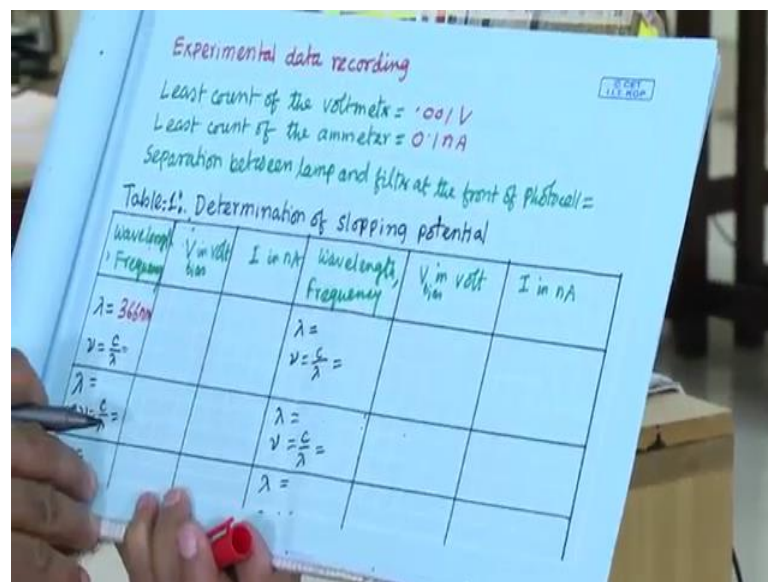 Experimental data recording
© CET
I.I.T. KGP
Least count of the voltmeter = .001 V
Least count of the ammeter = 0.1 nA
Separation between lamp and filter at the front of Photocell =
Table:1: Determination of stopping potential
Wavelength, Frequency V bias in volt I in nA Wavelength, Frequency V bias in volt I in nA
λ = 366nm
ν = c/λ =
λ =
ν = c/λ =
λ =
ν = c/λ =
λ =
ν = c/λ =
λ =